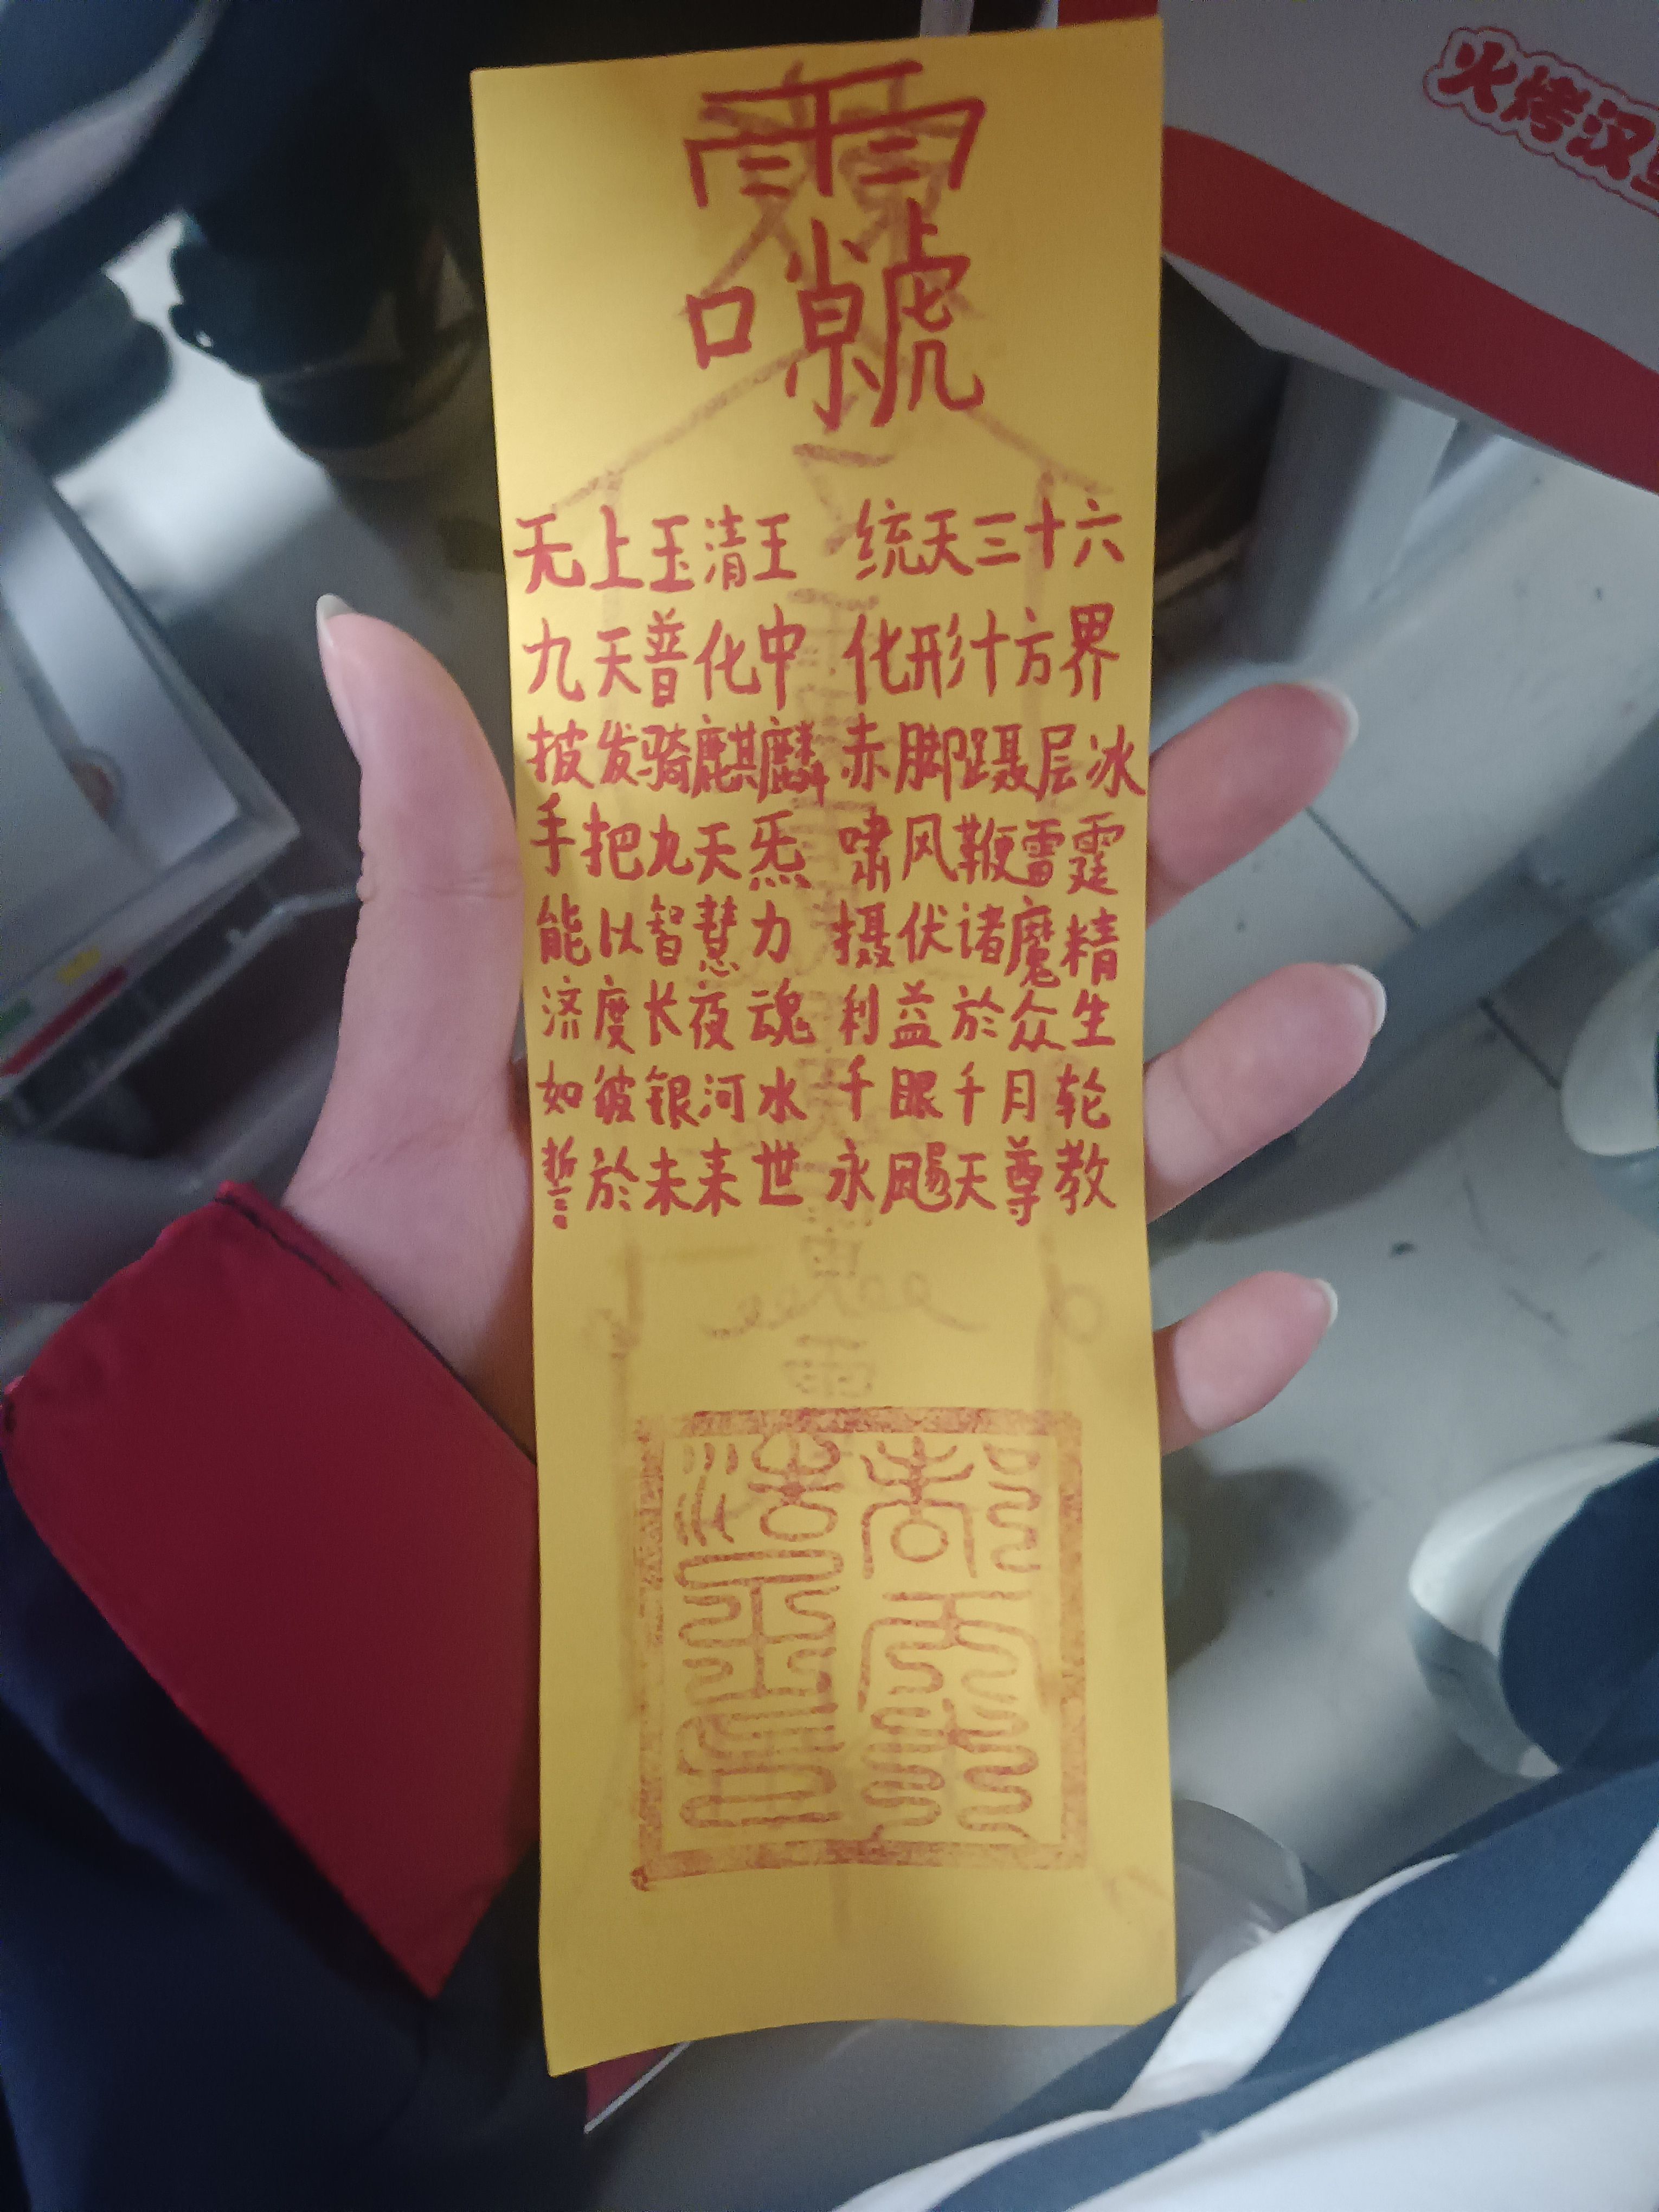 火烤汉
无上玉清王 统天三十六
九天普化中 化形十方界
披发骑麒麟 赤脚蹑层冰
手把九天炁 啸风鞭雷霆
能以智慧力 摄伏诸魔精
济度长夜魂 利益於众生
如彼银河水 千眼千月轮
誓於未来世 永飏天尊教